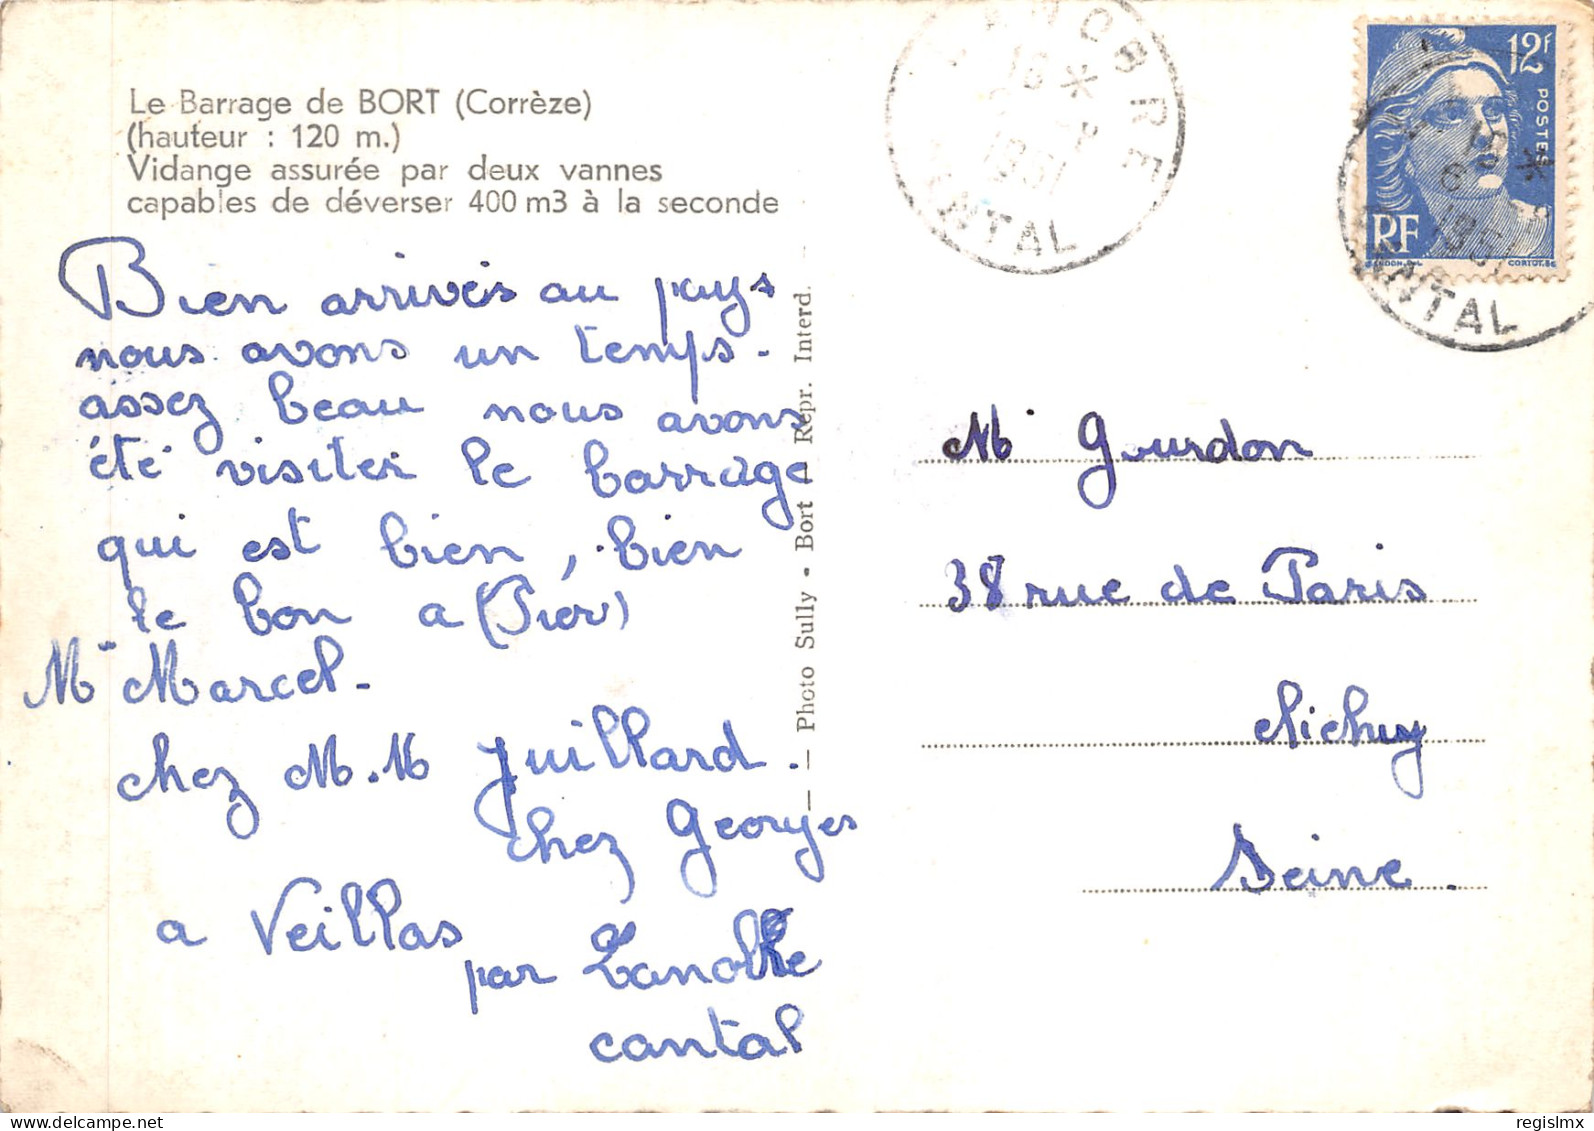 Le Barrage de BORT (Corrèze)
(hauteur : 120 m.)
Vidange assurée par deux vannes
capables de déverser 400 m3 à la seconde
Bien arrivés au pays
nous avons un temps.
assez beau nous avons
été visiter le barrage
qui est bien, bien
le bon a
Mr Marcel.
chez M. M Juillard.
chez Georges
a Veillas
par Lanobre
cantal
— Photo Sully • Bort — Repr. Interd.
LANOBRE
18 *
1951
CANTAL
12F
POSTES
RF
GANDON.DEL
CORTOT.SC
18 *
6
1951
CANTAL
Mr Gourdon
38 rue de Paris
clichy
Seine.
regislmx